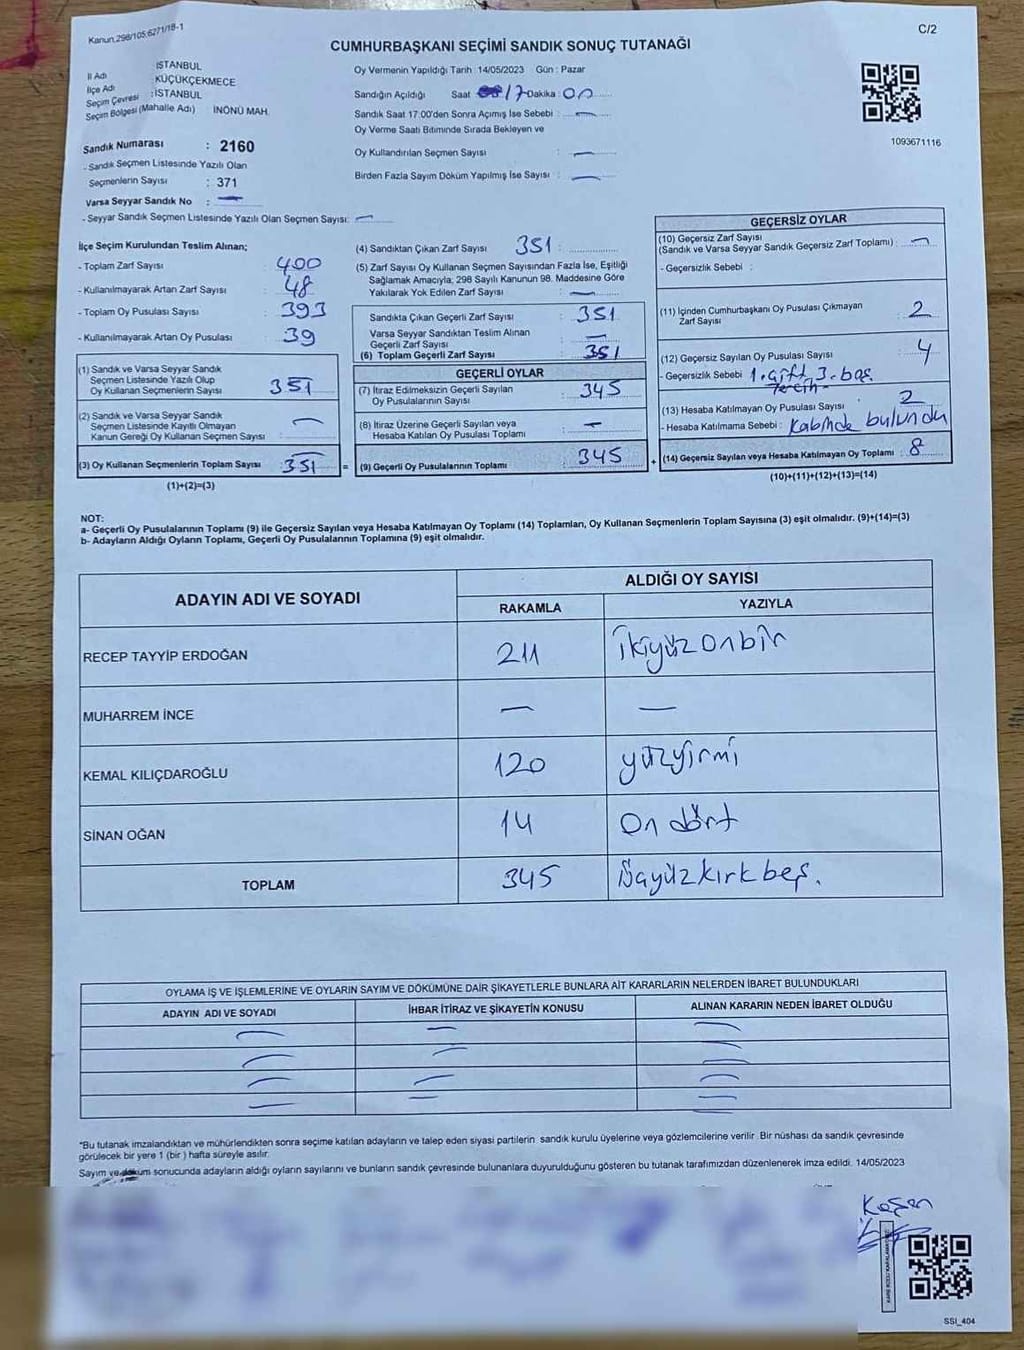 Kanun.298/105;6271/18-1
C/2
CUMHURBAŞKANI SEÇİMİ SANDIK SONUÇ TUTANAĞI
İl Adı : İSTANBUL
İlçe Adı : KÜÇÜKÇEKMECE
Seçim Çevresi : İSTANBUL
Seçim Bölgesi (Mahalle Adı) İNÖNÜ MAH.
Sandık Numarası : 2160
- Sandık Seçmen Listesinde Yazılı Olan
Seçmenlerin Sayısı : 371
Varsa Seyyar Sandık No : —
- Seyyar Sandık Seçmen Listesinde Yazılı Olan Seçmen Sayısı: —
Oy Vermenin Yapıldığı Tarih : 14/05/2023 Gün : Pazar
Sandığın Açıldığı Saat 17 Dakika : 00
Sandık Saat 17:00'den Sonra Açımış İse Sebebi : —
Oy Verme Saati Bitiminde Sırada Bekleyen ve
Oy Kullandırılan Seçmen Sayısı : —
Birden Fazla Sayım Döküm Yapılmış İse Sayısı : —
1093671116
İlçe Seçim Kurulundan Teslim Alınan;
- Toplam Zarf Sayısı : 400
- Kullanılmayarak Artan Zarf Sayısı : 48
- Toplam Oy Pusulası Sayısı : 393
- Kullanılmayarak Artan Oy Pusulası : 39
(1) Sandık ve Varsa Seyyar Sandık
Seçmen Listesinde Yazılı Olup
Oy Kullanan Seçmenlerin Sayısı : 351
(2) Sandık ve Varsa Seyyar Sandık
Seçmen Listesinde Kayıtlı Olmayan
Kanun Gereği Oy Kullanan Seçmen Sayısı : —
(3) Oy Kullanan Seçmenlerin Toplam Sayısı : 351 =
(1)+(2)=(3)
(4) Sandıktan Çıkan Zarf Sayısı 351
(5) Zarf Sayısı Oy Kullanan Seçmen Sayısından Fazla İse, Eşitliği
Sağlamak Amacıyla, 298 Sayılı Kanunun 98. Maddesine Göre
Yakılarak Yok Edilen Zarf Sayısı : —
Sandıkta Çıkan Geçerli Zarf Sayısı : 351
Varsa Seyyar Sandıktan Teslim Alınan
Geçerli Zarf Sayısı : —
(6) Toplam Geçerli Zarf Sayısı : 351
GEÇERLİ OYLAR
(7) İtiraz Edilmeksizin Geçerli Sayılan
Oy Pusulalarının Sayısı : 345
(8) İtiraz Üzerine Geçerli Sayılan veya
Hesaba Katılan Oy Pusulası Toplamı : —
(9) Geçerli Oy Pusulalarının Toplamı : 345 +
GEÇERSİZ OYLAR
(10) Geçersiz Zarf Sayısı
(Sandık ve Varsa Seyyar Sandık Geçersiz Zarf Toplamı) : —
- Geçersizlik Sebebi :
(11) İçinden Cumhurbaşkanı Oy Pusulası Çıkmayan
Zarf Sayısı : 2
(12) Geçersiz Sayılan Oy Pusulası Sayısı : 4
- Geçersizlik Sebebi 1.çift 3.boş
tercih
(13) Hesaba Katılmayan Oy Pusulası Sayısı : 2
- Hesaba Katılmama Sebebi : Kabinde bulundu
(14) Geçersiz Sayılan veya Hesaba Katılmayan Oy Toplamı : 8
(10)+(11)+(12)+(13)=(14)
NOT:
a- Geçerli Oy Pusulalarının Toplamı (9) ile Geçersiz Sayılan veya Hesaba Katılmayan Oy Toplamı (14) Toplamları, Oy Kullanan Seçmenlerin Toplam Sayısına (3) eşit olmalıdır. (9)+(14)=(3)
b- Adayların Aldığı Oyların Toplamı, Geçerli Oy Pusulalarının Toplamına (9) eşit olmalıdır.
ADAYIN ADI VE SOYADI
ALDIĞI OY SAYISI
RAKAMLA YAZIYLA
RECEP TAYYİP ERDOĞAN 211 İkiyüz onbir
MUHARREM İNCE — —
KEMAL KILIÇDAROĞLU 120 yüzyirmi
SİNAN OĞAN 14 On dört
TOPLAM 345 Üçyüz kırk beş.
OYLAMA İŞ VE İŞLEMLERİNE VE OYLARIN SAYIM VE DÖKÜMÜNE DAİR ŞİKAYETLERLE BUNLARA AİT KARARLARIN NELERDEN İBARET BULUNDUKLARI
ADAYIN ADI VE SOYADI İHBAR İTİRAZ VE ŞİKAYETİN KONUSU ALINAN KARARIN NEDEN İBARET OLDUĞU
— — —
— — —
— — —
— — —
*Bu tutanak imzalandıktan ve mühürlendikten sonra seçime katılan adayların ve talep eden siyasi partilerin sandık kurulu üyelerine veya gözlemcilerine verilir. Bir nüshası da sandık çevresinde
görülecek bir yere 1 (bir ) hafta süreyle asılır.
Sayım ve döküm sonucunda adayların aldığı oyların sayılarını ve bunların sandık çevresinde bulunanlara duyurulduğunu gösteren bu tutanak tarafımızdan düzenlenerek imza edildi. 14/05/2023
SSI_404